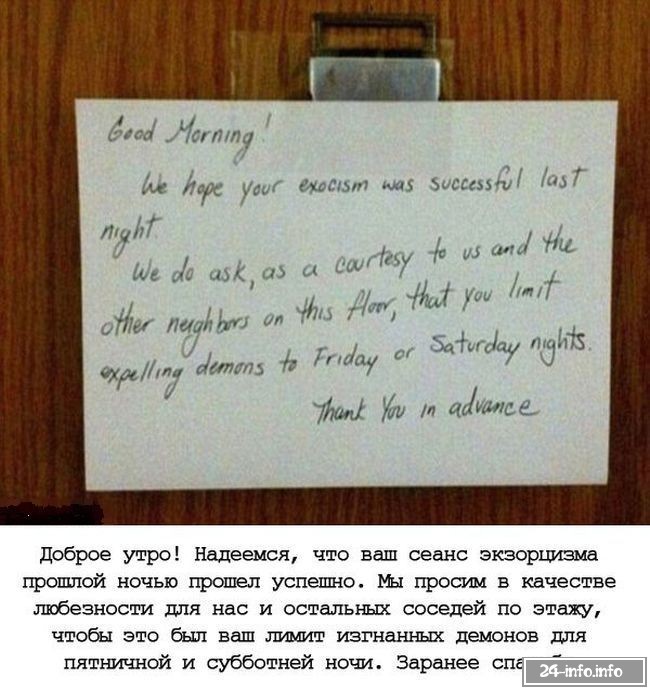 Good Morning!
We hope your exocism was successful last
night.
We do ask, as a courtesy to us and the
other neighbors on this floor, that you limit
expelling demons to Friday or Saturday nights.
Thank You in advance
Доброе утро! Надеемся, что ваш сеанс экзорцизма
прошлой ночью прошел успешно. Мы просим в качестве
любезности для нас и остальных соседей по этажу,
чтобы это был ваш лимит изгнанных демонов для
пятничной и субботней ночи. Заранее
24-info.info